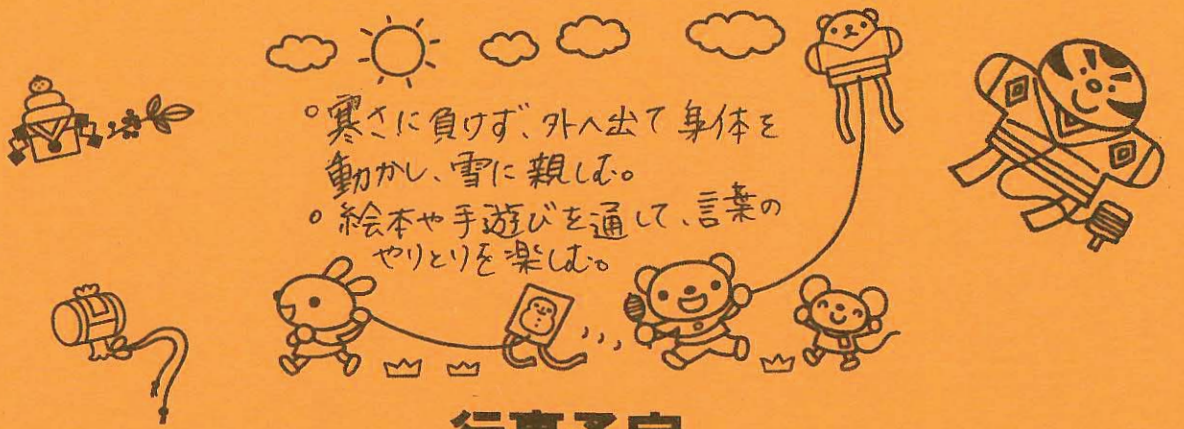 ○寒さに負けず、外へ出て身体を
動かし、雪に親しむ。
○絵本や手遊びを通して、言葉の
やりとりを楽しむ。
行事予定